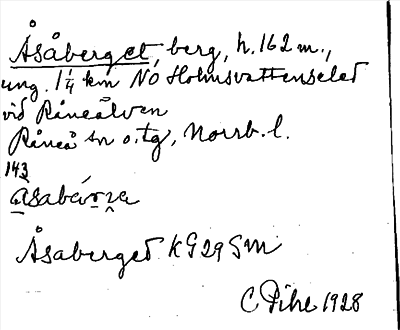 Åsåberget, berg, h. 162 m.,
ung. 1 1/4 km NO Holmsvattenseled
vid Råneälven
Råneå sn o. tg, Norrb. l.
143
Åsaberged KG 29 Sm
C Pihl 1928